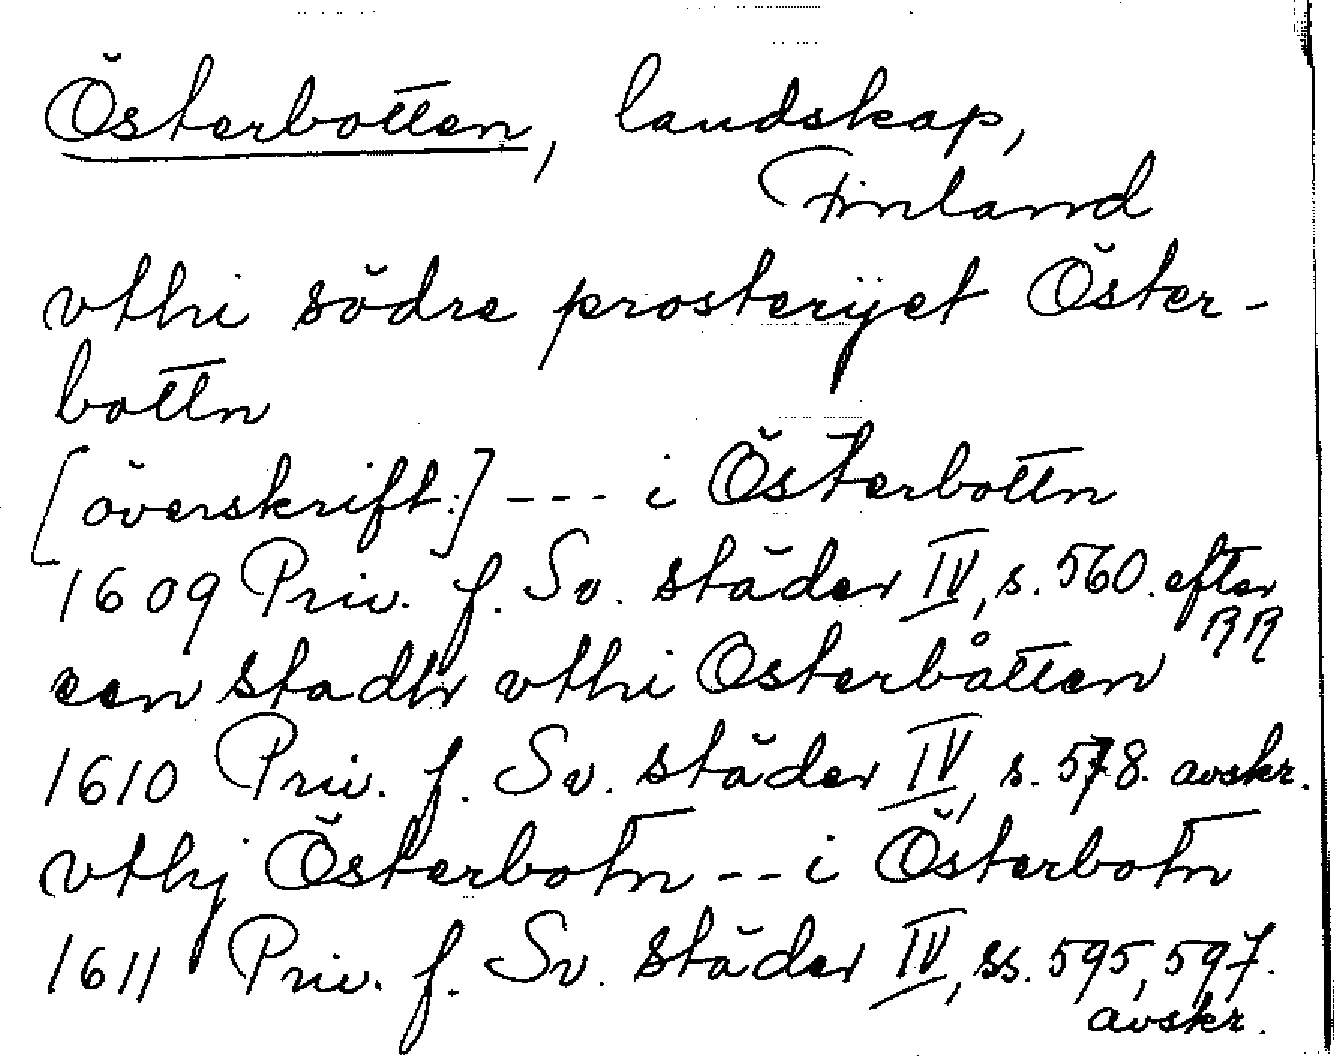 Österbotten, landskap,
Finland
vthi södre prosterijet Öster-
bottn
[överskrift:] --- i Österbottn
1609 Priv. f. Sv. städer IV, s. 560. efter
RR
een stadh vthi Osterbåtten
1610 Priv. f. Sv. städer IV, s. 578. avskr.
vthj Österbotn -- i Österbotn
1611 Priv. f. Sv. städer IV, ss. 595, 597.
avskr.